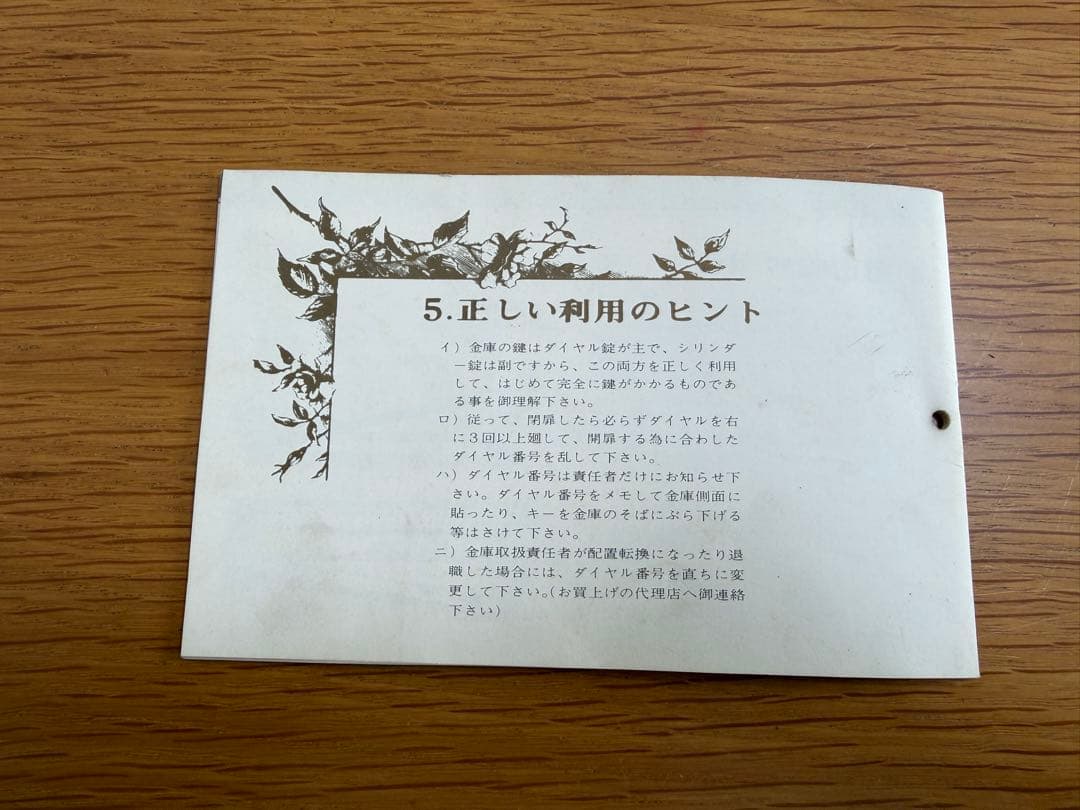 5.正しい利用のヒント
イ）金庫の鍵はダイヤル錠が主で、シリンダ
ー錠は副ですから、この両方を正しく利用
して、はじめて完全に鍵がかかるものであ
る事を御理解下さい。
ロ）従って、閉扉したら必らずダイヤルを右
に３回以上廻して、開扉する為に合わした
ダイヤル番号を乱して下さい。
ハ）ダイヤル番号は責任者だけにお知らせ下
さい。ダイヤル番号をメモして金庫側面に
貼ったり、キーを金庫のそばにぶら下げる
等はさけて下さい。
ニ）金庫取扱責任者が配置転換になったり退
職した場合には、ダイヤル番号を直ちに変
更して下さい。(お買上げの代理店へ御連絡
下さい)